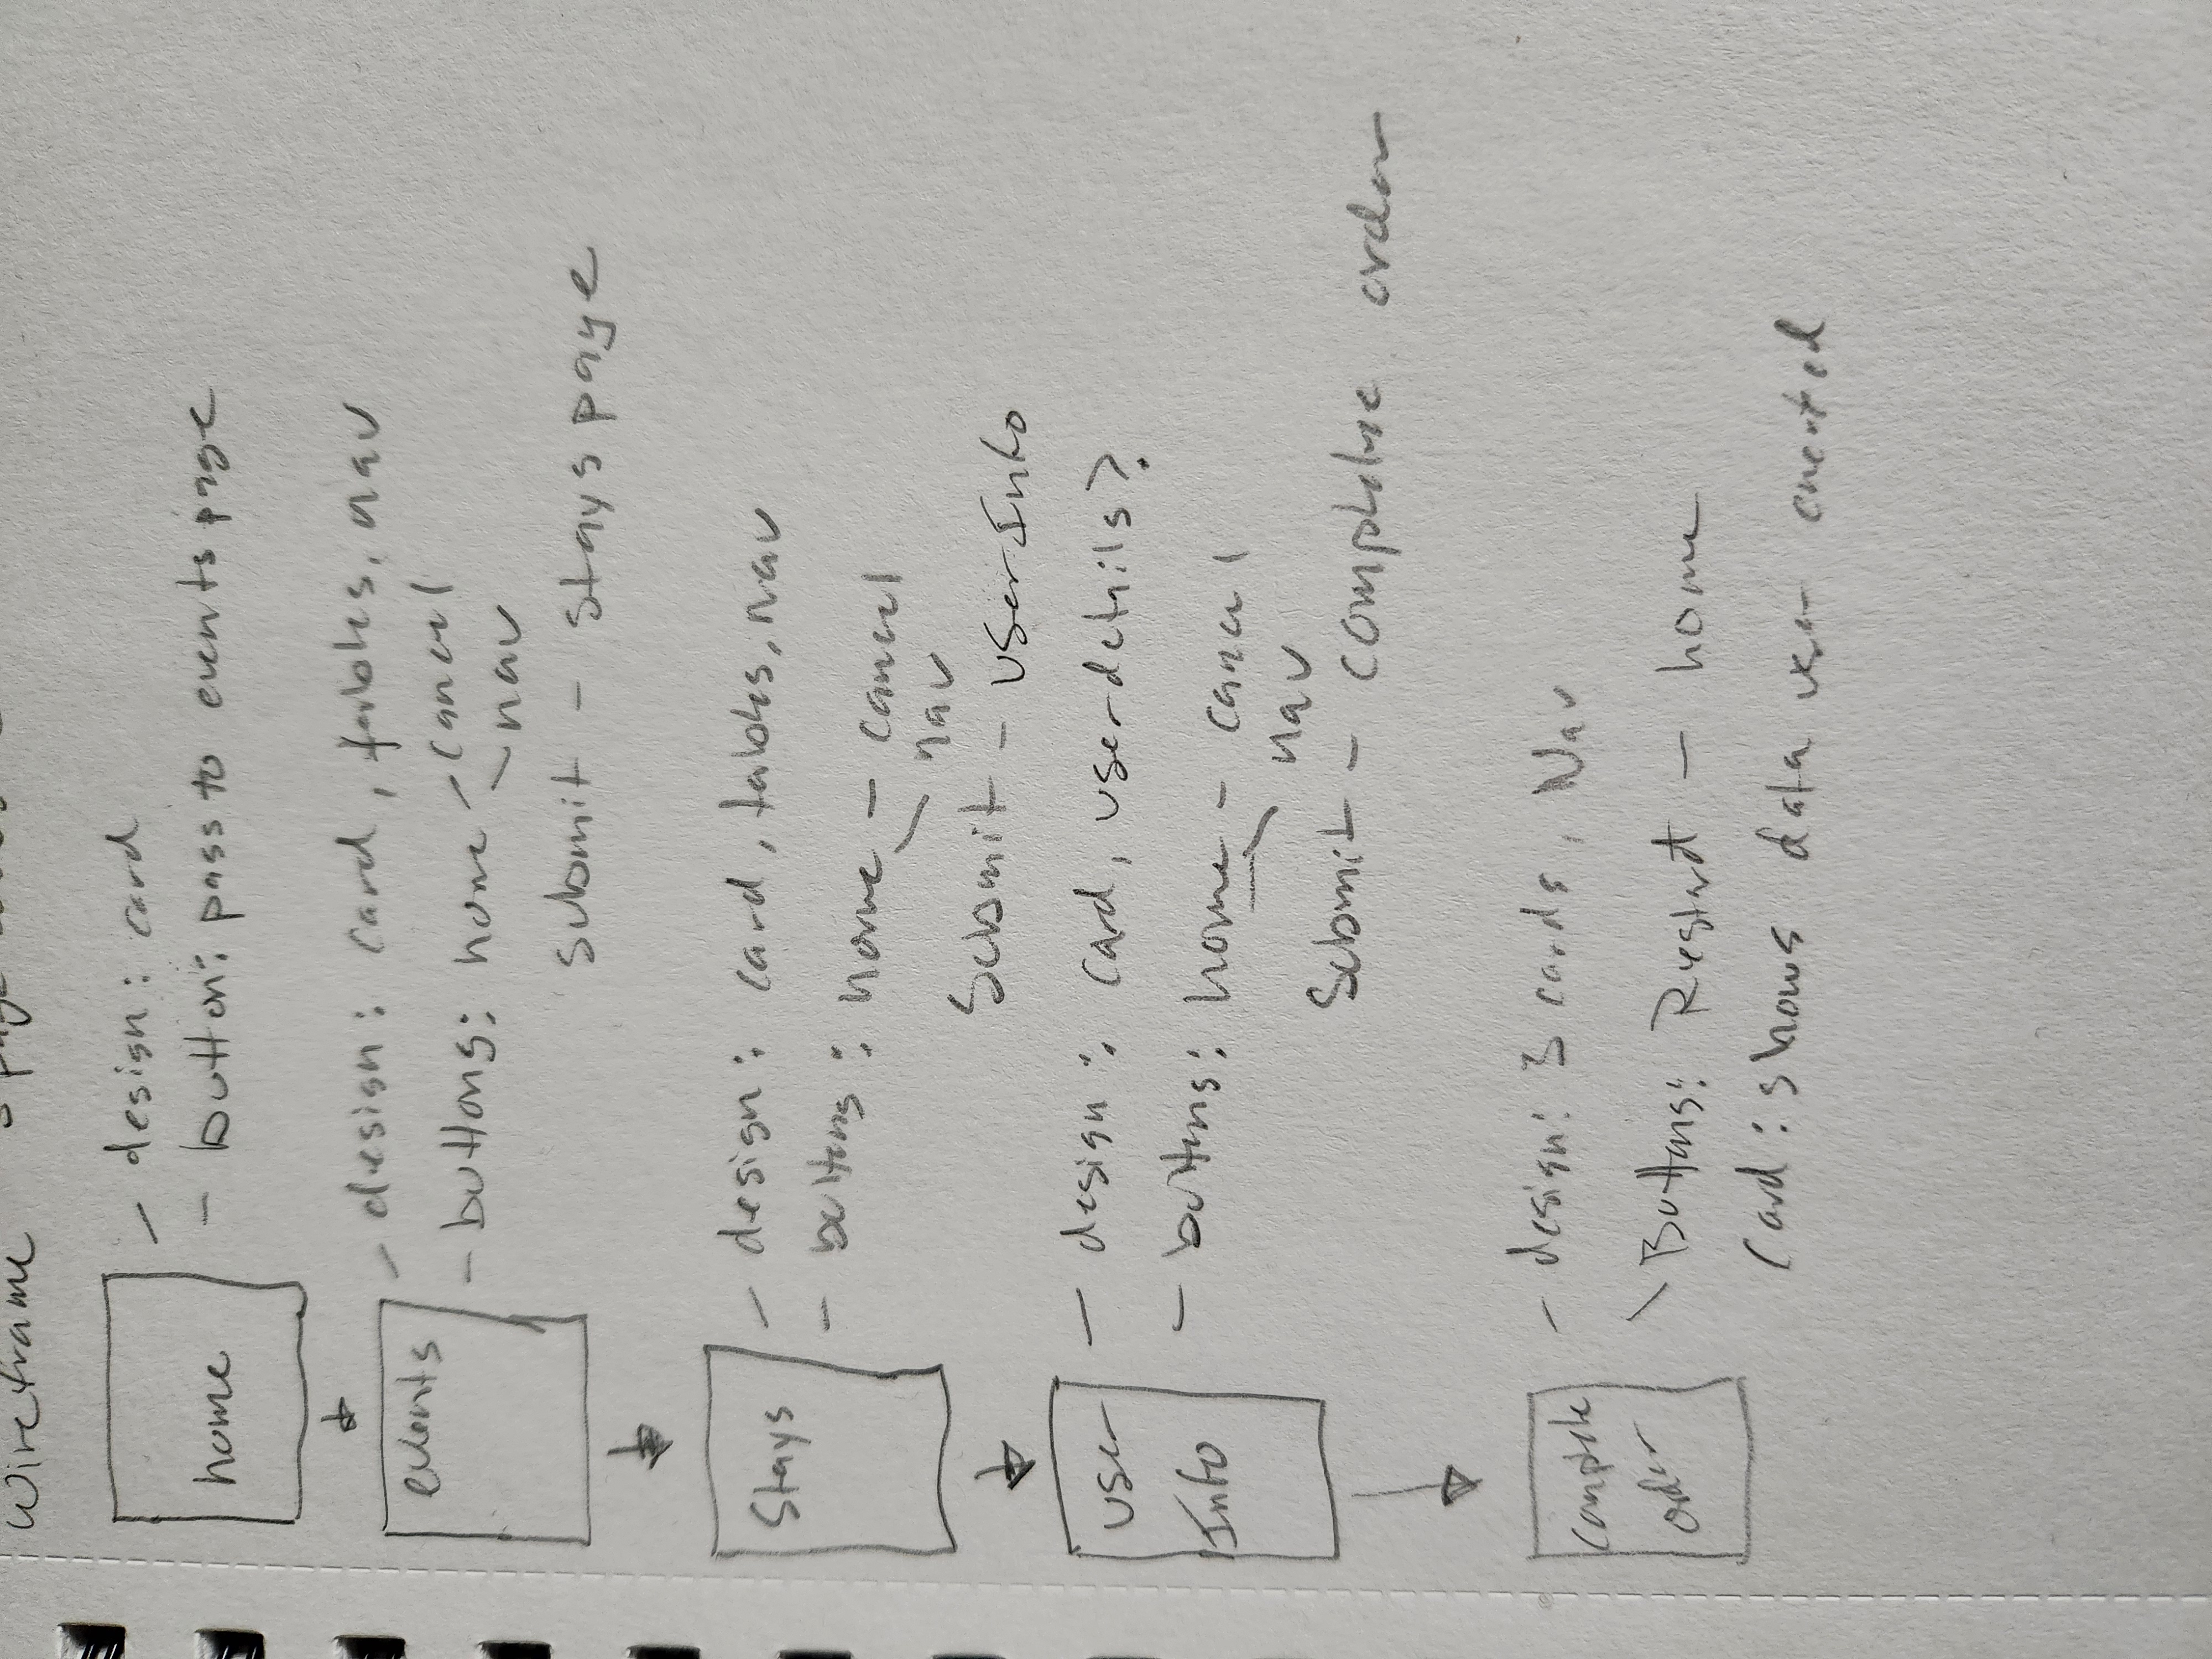 Wireframe 5 page
home
- design: card
- button: pass to events page
events
- design: card, tables, nav
- buttons: home - cancel
- nav
submit - stays page
Stays
- design: card, tables, nav
- buttons: home - cancel
nav
Submit - User Info
User
Info
- design: card, user details?
- buttons: home - cancel
nav
Submit - complete order
complete
order
- design: 3 cards, Nav
Buttons: Restart - home
Card: shows data user